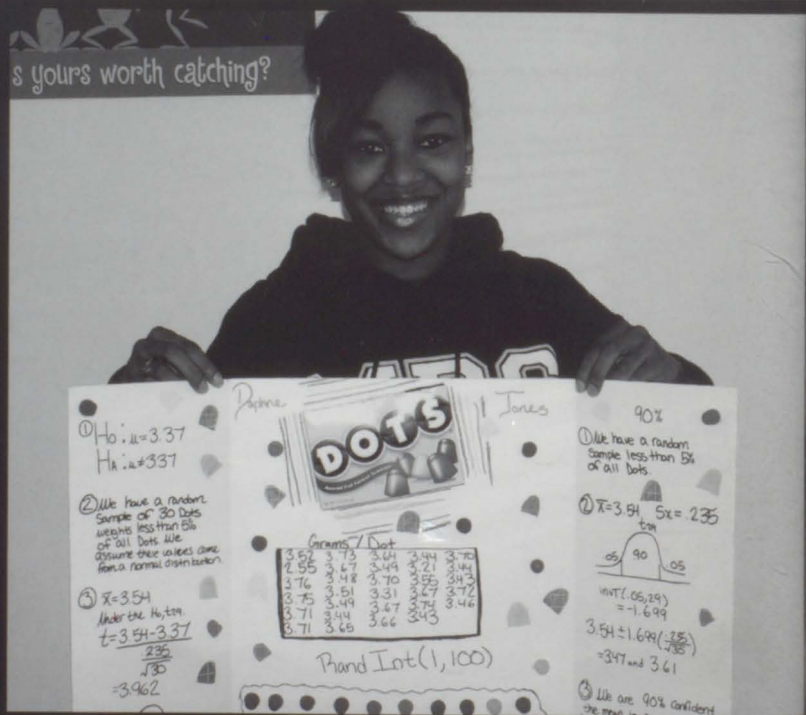 s yours worth catching?
Daphne
Jones
DOTS
① H₀: μ=3.37
Hₐ: μ≠337
② We have a random
Sample of 30 Dots
weights less than 5%
of all Dots. We
assume these values come
from a normal distribution.
③ x̄=3.54
Under the H₀, t₂₉.
t=3.54-3.37
.235
√30
=3.962
Grams/Dot
3.52 3.73 3.64 3.44 3.70
2.55 3.67 3.49 3.21 3.44
3.76 3.48 3.70 3.55 3.43
3.75 3.51 3.31 3.67 3.72
3.71 3.49 3.67 3.74 3.46
3.71 3.44 3.66 3.43
3.65
Rand Int(1,100)
90%
① We have a random
sample less than 5%
of all Dots.
② x̄=3.54 Sx=.235
t₂₉
.05 90 .05
invT(.05,29)
=-1.699
3.54±1.699(.235/√30)
=3.47 and 3.61
③ We are 90% confident